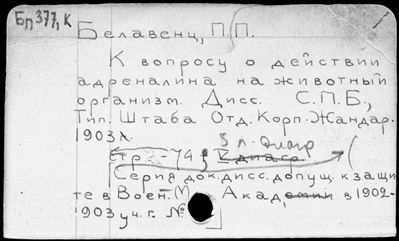 Бп 377, к
Белавенц, П.П.
К вопросу о действии
адреналина на животный
организм. Дисс. С.П.Б.,
Тип. Штаба Отд. Корп. Жандар.
1903 г.
стр 2-74, 5 л. диагр
V диагр.
(Серия док. дисс. допущ. к защи
те в Воен. (М) Академии в 1902-
1903 уч. г. №